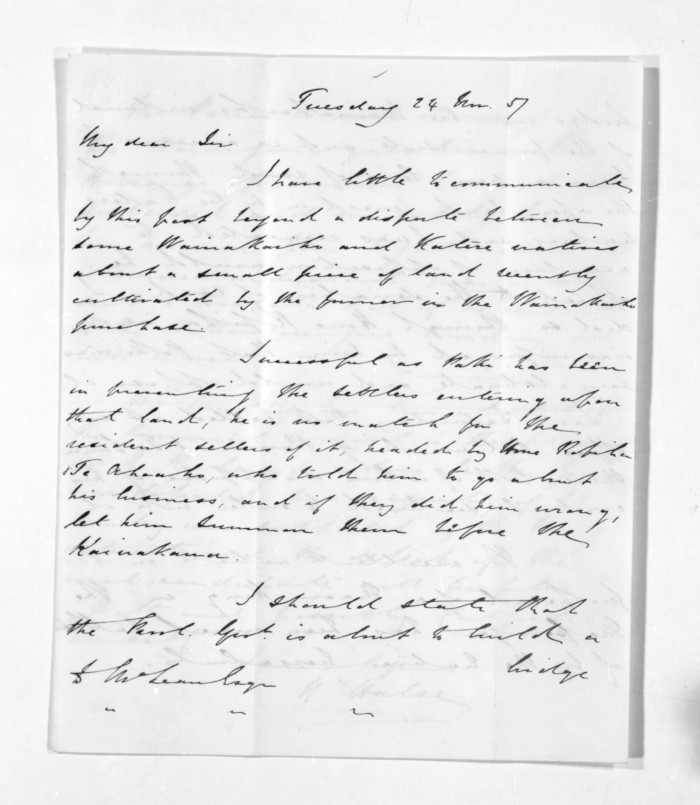 Tuesday 24 Nov. 57
My dear Sir
I have little to communicate
by this post beyond a dispute between
some Waiwakaiho and Katere natives
about a small piece of land recently
cultivated by the former in the Waiwakaiho
purchase.
Successful as Katu has been
in preventing the settlers entering upon
that land, he is no match for the
resident sellers of it, headed by Hone Ropiha
Te , who told him to go about
his business, and if they did him wrong,
let him summon them before the
Kaiwakawa.
I should state that
the Provl. Govt. is about to build a
bridge
D McLean Esqre
" " "